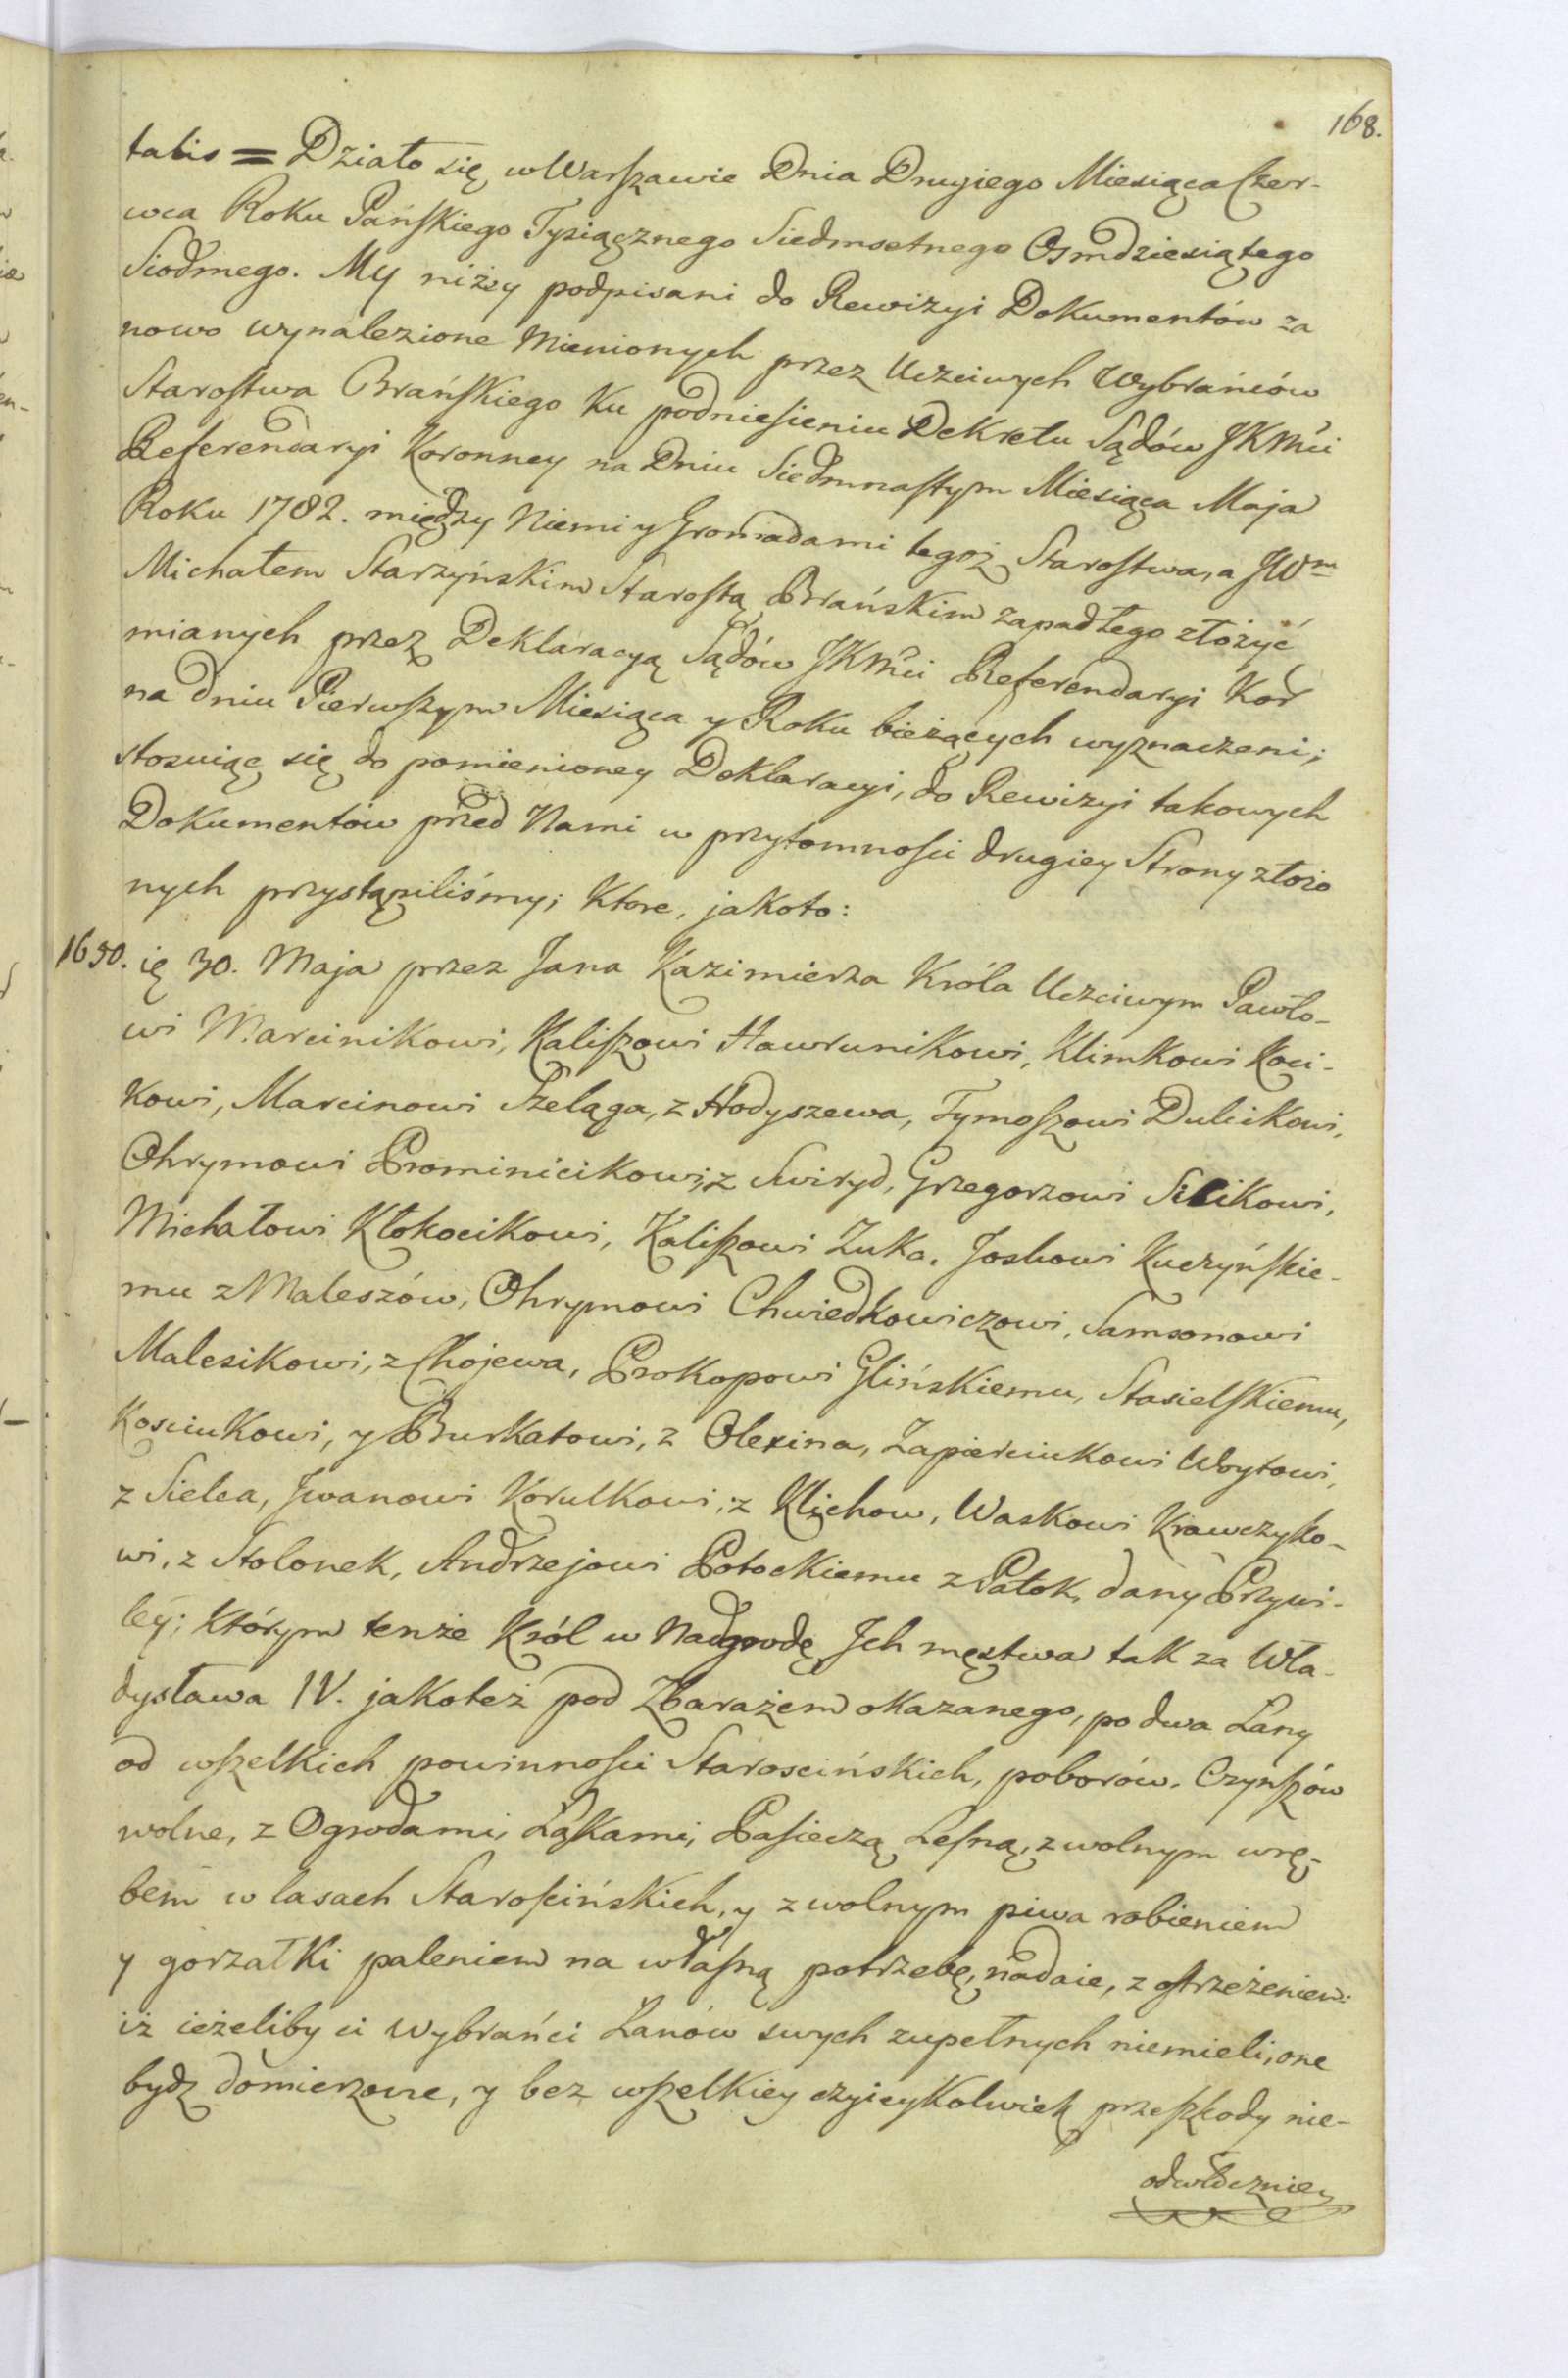 168.
talis = Działo się w Warszawie Dnia Drugiego Miesiąca Czer-
wca Roku Pańskiego Tysiącznego Siedmsetnego Osmdziesiątego
Siodmego. My niżey podpisani do Rewizyi Dokumentów za
nowo wynalezione mienionych przez Uczciwych Wybrańców
Starostwa Brańskiego ku podniesieniu Dekretu Sądów JKMci
Referendaryi Koronney na Dniu Siedmnastym Miesiąca Maja
Roku 1782. między Niemi y Gromadami tegoż Starostwa, a JWm
Michałem Starzyńskim Starostą Brańskim zapadłego złożyć
mianych przez Deklaracyą Sądów JKMci Referendaryi Kor
na dniu Pierwszym Miesiąca y Roku bieżących wyznaczeni;
stosuiąc się do pomienioney Deklaracyi, do Rewizyi takowych
Dokumentów przed Nami w przytomności drugiey Strony złożo
nych przystąpiliśmy; Ktore, jakoto:
1650. ię 30. Maja przez Jana Kazimierza Króla Uczciwym Pawło-
wi Marcinikowi, Kaliszowi Hawrunikowi, Klimkowi Koci-
kowi, Marcinowi Szeląga, z Hodyszewa, Tymoszowi Dulcikowi,
Ohrymowi Prominicikowi, z Swiryd, Grzegorzowi Silikowi,
Michałowi Kłokocikowi, Kaliszowi Zuka, Joskowi Kuczyńskie-
mu z Maleszów, Ohrymowi Chwiedkowiczowi, Samsonowi
Malesikowi, z Chojewa, Prokopowi Glińskiemu, Stasielskiemu,
Kosciukowi, y Burkatowi, z Olexina, Zapierciukowi Woytowi,
z Sielca, Jwanowi Korulkowi; z Klichow, Waskowi Krawczyko-
wi, z Stolonek, Andrzejowi Potockiemu z Pałok, dany Przywi-
ley; którym tenże Król w Nadgrodę Jch męstwa tak za Wła-
dysława IV. jakoteż pod Zbarażem okazanego, po dwa Łany
od wszelkich powinności Staroscińskich, poborów, Czynszów
wolne, z Ogrodami, Łąkami, Pasieczą Lesną, z wolnym wrę-
bem w lasach Starościńskich, y z wolnym piwa robieniem
y gorzałki paleniem na własną potrzebę, nadaie, z ostrzeżeniem:
iż ieżeliby ci Wybrańci Łanów swych zupełnych niemieli, one
bydz domierzone, y bez wszelkiey czyieykolwiek przeszkody nie-
odwłoczniey